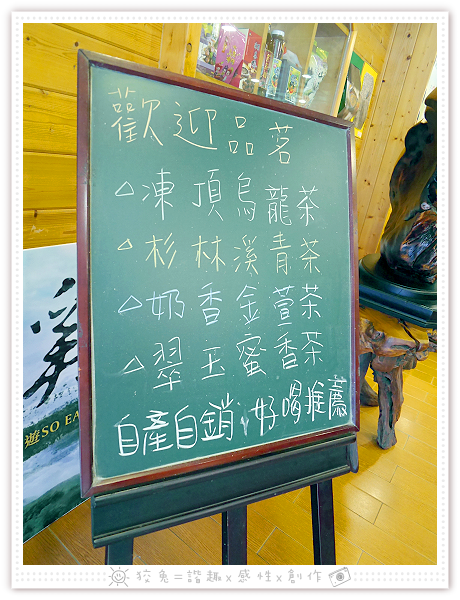 歡迎品茗
△凍頂烏龍茶
△杉林溪青茶
△奶香金萱茶
△翠玉蜜香茶
自產自銷，好喝推薦
遊SO EA
狡兔=諧趣x感性x創作